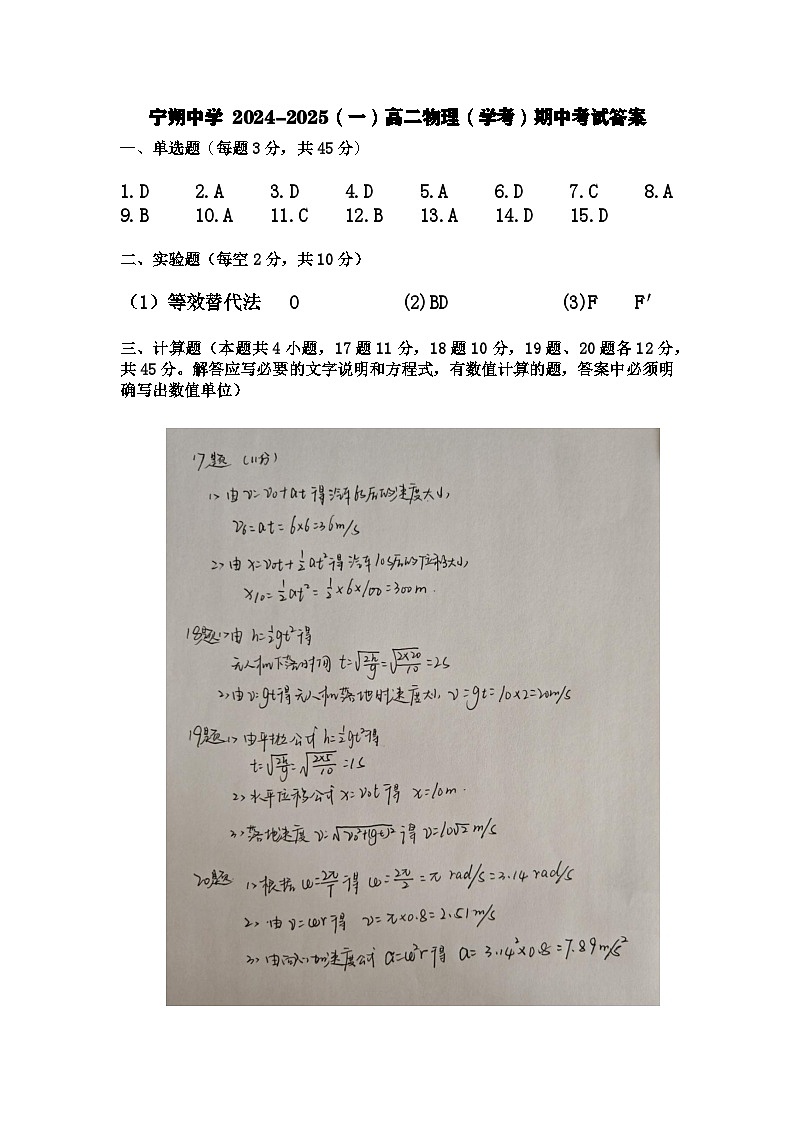 宁朔中学 2024-2025(一)高二物理(学考)期中考试答案
一、单选题(每题3分,共45分)
1.D 2.A 3.D 4.D 5.A 6.D 7.C 8.A
9.B 10.A 11.C 12.B 13.A 14.D 15.D
二、实验题(每空2分,共10分)
(1)等效替代法 O (2)BD (3)F F′
三、计算题(本题共4小题,17题11分,18题10分,19题、20题各12分,
共45分。解答应写必要的文字说明和方程式,有数值计算的题,答案中必须明
确写出数值单位)
17题 (11分)
1> 由 v=v0+at 得汽车6s后的速度大小
v6=at=6×6=36m/s
2> 由 x=v0t+½at²得汽车10s后的位移大小
x10=½at²=½×6×100=300m.
18题1>由 h=½gt²得
无人机下落时间 t=√(2h/g)=√(2×20/10)=2s
2>由v=gt得无人机落地时速度大小 v=gt=10×2=20m/s
19题1> 由平抛公式 h=½gt²得
t=√(2h/g)=√(2×5/10)=1s
2> 水平位移公式 x=v0t 得 x=10m.
3> 落地速度 v=√(v0²+(gt)²) 得 v=10√2 m/s
20题 1>根据 ω=2π/T 得 ω=2π/2=π rad/s=3.14 rad/s
2> 由 v=ωr 得 v=π×0.8=2.51m/s
3> 由向心加速度公式 a=ω²r 得 a=3.14²×0.8=7.89m/s²